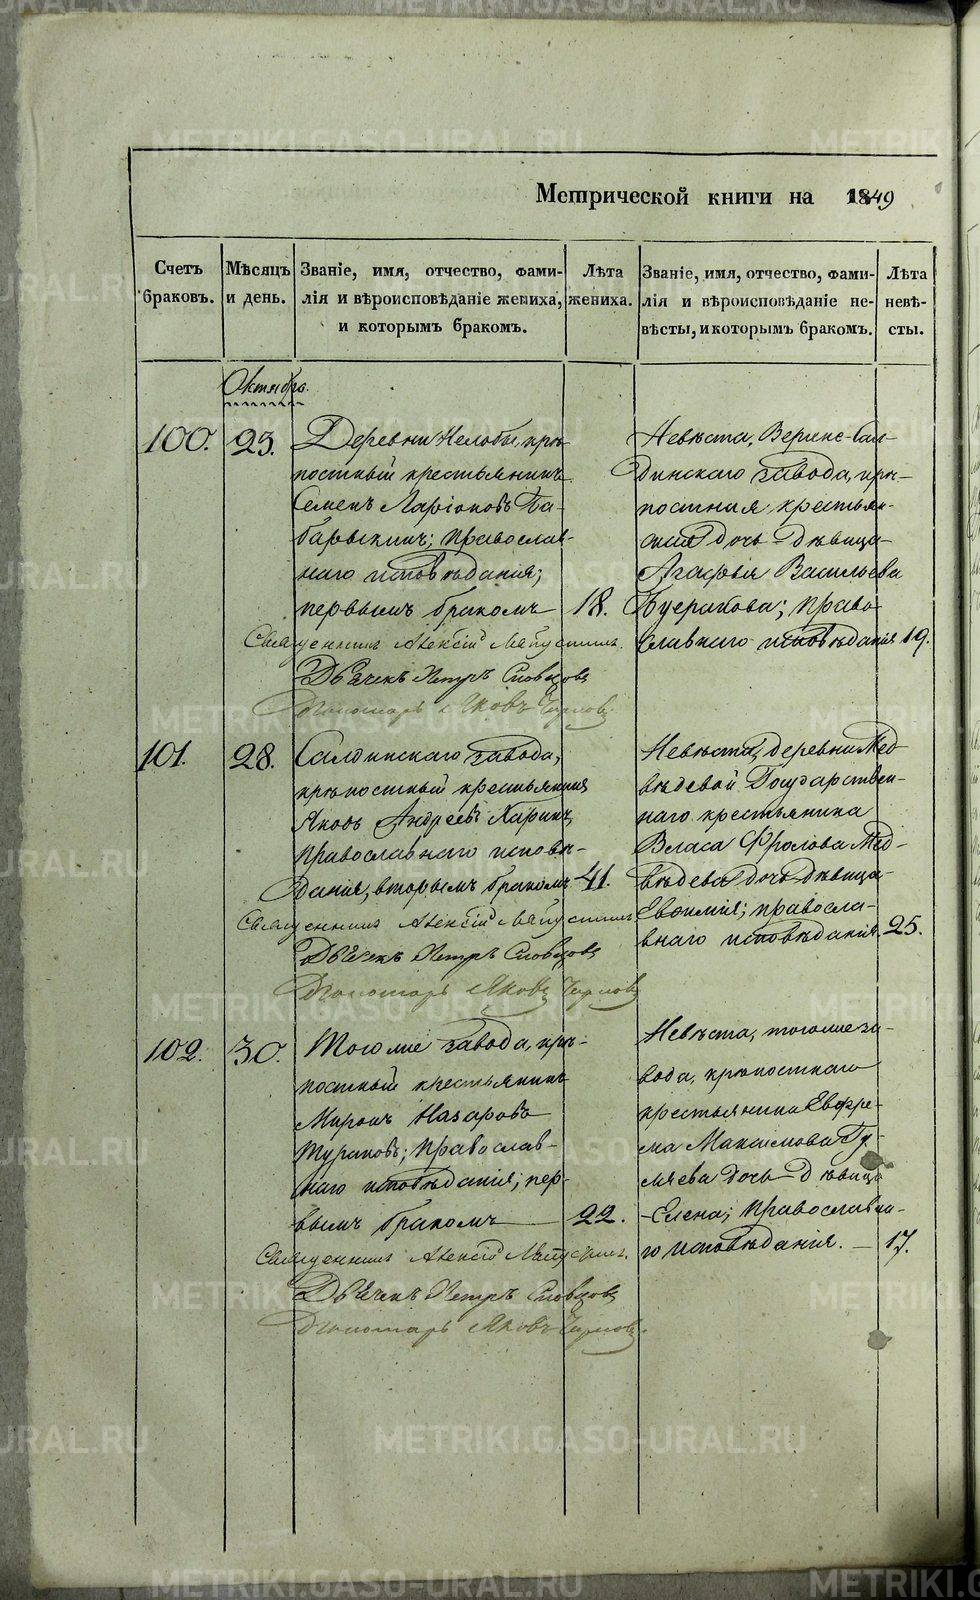 Метрической книги на 1849
Счетъ браковъ.
Мѣсяцъ и день.
Званіе, имя, отчество, фами-
лія и вѣроисповѣданіе жениха,
и которымъ бракомъ.
Лѣта
жениха.
Званіе, имя, отчество, фами-
лія и вѣроисповѣданіе не-
вѣсты, и которымъ бракомъ.
Лѣта
невѣ-
сты.
Октября.
100. 23.
Деревни Нелобы, крѣ-
постный крестьянинъ
Семенъ Ларіоновъ
православ-
наго исповѣданія;
первымъ бракомъ 18.
Священникъ Алексій
Дьячекъ Петръ Словцовъ
Пономарь Яковъ
Невѣста, Верхне-Сал-
динскаго завода, крѣ-
постная крестьян-
ская дочь-дѣвица
Агафія Васильева
право-
славнаго исповѣданія 19.
101. 28.
Салдинскаго завода,
крѣпостный крестьянинъ
Яковъ Андреевъ
православнаго исповѣ-
данія, вторымъ бракомъ 41.
Священникъ Алексій
Дьячекъ Петръ Словцовъ
Пономарь Яковъ
Невѣста, деревни Мед-
вѣдевой Государствен-
наго крестьянина
Власа Фролова Мед-
вѣдева дочь дѣвица
Евфимія; правосла-
внаго исповѣданія. 25.
102. 30.
Тогоже завода, крѣ-
постный крестьянинъ
Миронъ Назаровъ
православ-
наго исповѣданія; пер-
вымъ бракомъ 22.
Священникъ Алексій
Дьячекъ Петръ Словцовъ
Пономарь Яковъ
Невѣста, тогоже за-
вода, крѣпостнаго
крестьянина Евфре-
ма Максимова Гу-
ляева дочь-дѣвица
Елена; православна-
го исповѣданія. — 17.
METRIKI.GASO-URAL.RU